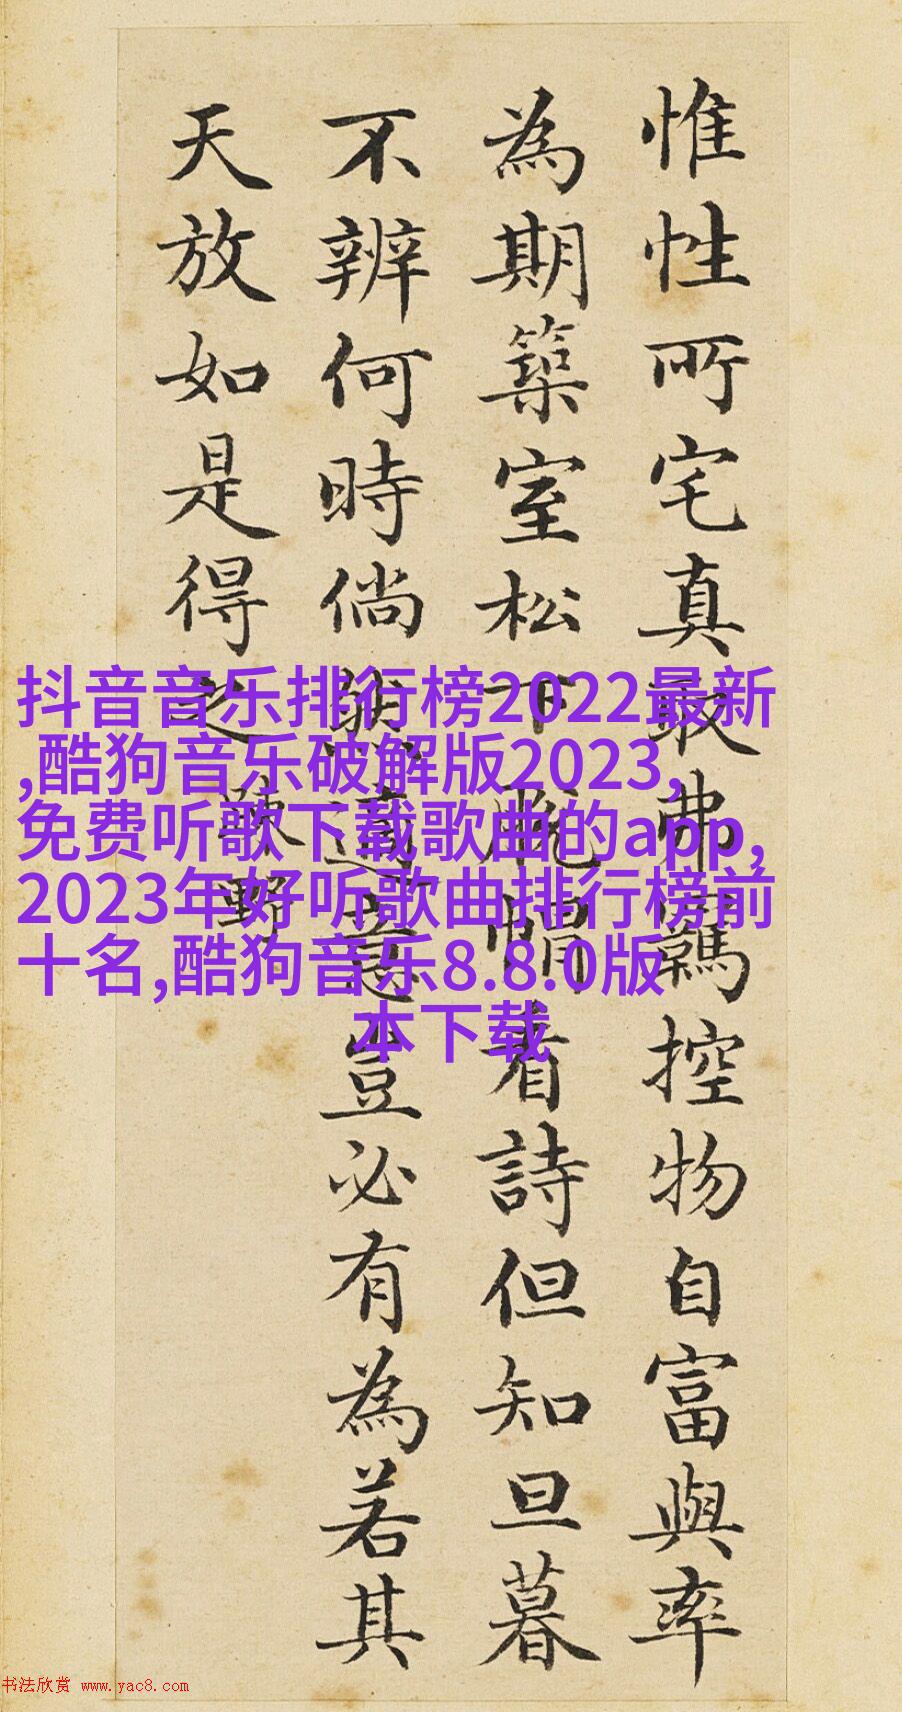 惟性所宅真取弗羈控物自富與率
為期築室松下脫帽看詩但知旦暮
不辨何時倘然適意豈必有為若其
天放如是得之
疎野
抖音音乐排行榜2022最新
,酷狗音乐破解版2023,
免费听歌下载歌曲的app,
2023年好听歌曲排行榜前
十名,酷狗音乐8.8.0版
本下载
书法欣赏 www.yac8.com